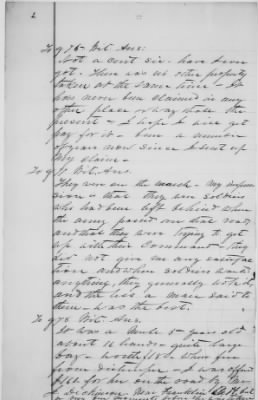 2
To q 76 - Wit. Ans:
Not a cent sir - have never
got. There was no other property
taken at the same time - It
has never been claimed in any
other place or way than the
present - I hope to sire get
pay for it - been a number
of years now since I sent up
my claim -
To q 77 Wit. Ans.
They were on the march - My impres
sion is that they are soldiers
who had been left behind when
the army passed on that road
and that they were trying to get
up with their Command - they
did not give me any satisfac
tion and when soldiers want
anything, they generally
and the less a man said to
them - was the best.
To q 78 Wit. Ans.
It was a Mule 5 - years old
about 16 hands - quite large
bay - worth $150 - when free
from distemper - I was offered
for her on the road by
Dickinson Near Franklin